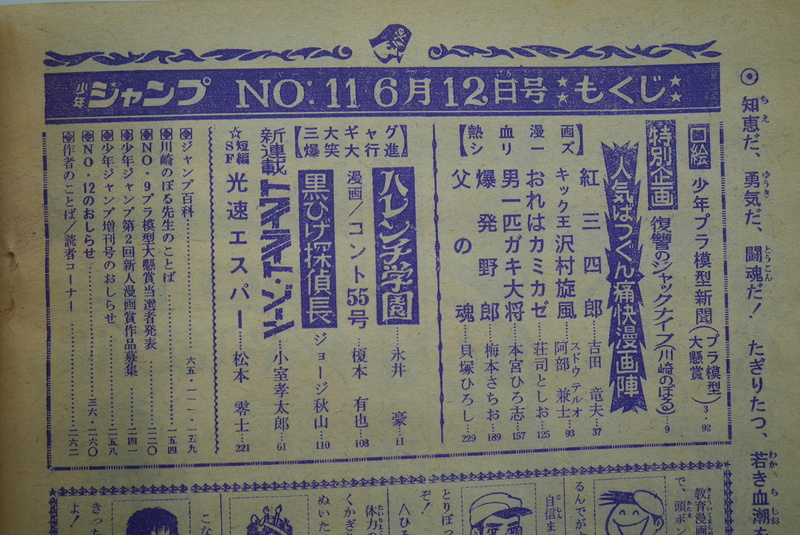 ◎知恵だ、勇気だ、闘魂だ! たぎりたつ、若き血潮を
少年ジャンプ NO.11 6月12日号 ☆☆もくじ☆☆
口絵 少年プラ模型新聞(プラ模型大懸賞) 3・92
特別企画 復讐のジャックナイフ(川崎のぼる) 9
人気ばつぐん痛快漫画陣
【熱血漫画シリーズ】
紅三四郎 吉田竜夫 37
キック王沢村旋風 スドウテルオ 阿部兼士 93
おれはカミカゼ 荘司としお 125
男一匹ガキ大将 本宮ひろ志 157
爆発野郎 梅本さちお 189
父の魂 貝塚ひろし 229
【三大ギャグ爆笑行進】
ハレンチ学園 永井豪 11
漫画/コント55号 榎本有也 103
黒ひげ探偵長 ジョージ秋山 110
新連載 トワイライト・ゾーン 小室孝太郎 61
☆短編SF 光速エスパー 松本零士 221
ジャンプ百科 六五・一一一・一五九
川崎のぼる先生のことば 一五四
NO・9プラ模型大懸賞当選者発表 二二〇
少年ジャンプ第2回新人漫画賞作品募集 二四一
少年ジャンプ増刊号のおしらせ 二五八
NO・12のおしらせ 三六・二六〇
作者のことば/読者コーナー 二六二
教育漫画
で、頭ポン
るんでがす
自信ま
とりぼっ
ぞ!
〈ひろ
体力の
くかぎ
ぬいた
こな
きった
よ!